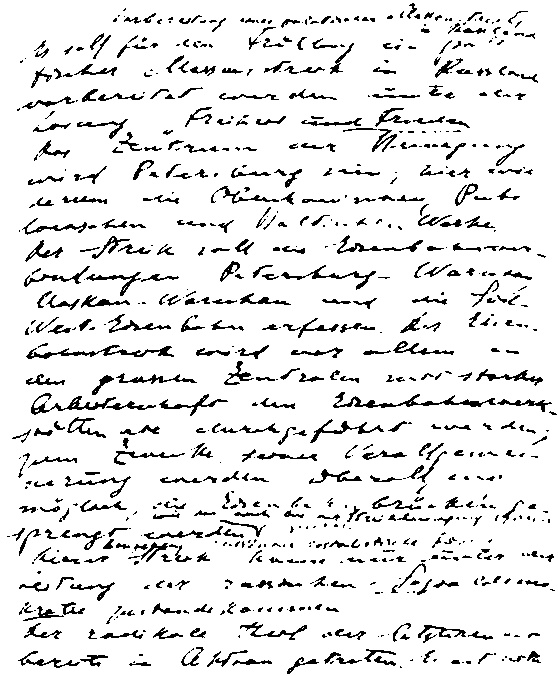 Vorbereitung eines politischen Massenstreiks
in Russland
Es soll für den Frühling ein poli-
tischer Massenstreik in Russland
vorbereitet werden unter der
Losung Freiheit und Frieden
Das Zentrum der Bewegung
wird Petersburg sein, hier wie-
derum die Obuchowschen, Puti-
lowschen und Baltischen Werke.
Der Streik soll die Eisenbahnver-
bindungen Petersburg-Warschau
Moskau-Warschau und die Süd-
West-Eisenbahn erfassen. Der Eisen-
bahnstreik wird vor allem in
den grossen Zentralen mit starker
Arbeiterschaft den Eisenbahnwerk-
stätten etc durchgeführt werden,
zum Zwecke seiner Verallgemei-
nerung werden überall wo
möglich, die Eisenbahnbrücken ge-
sprengt werden
Dieser Streik kann nur unter der
Leitung der russischen Sozialdemo-
kratie zustande kommen
Der radikale Theil der letzteren
bereits in Aktion getreten. Es ist